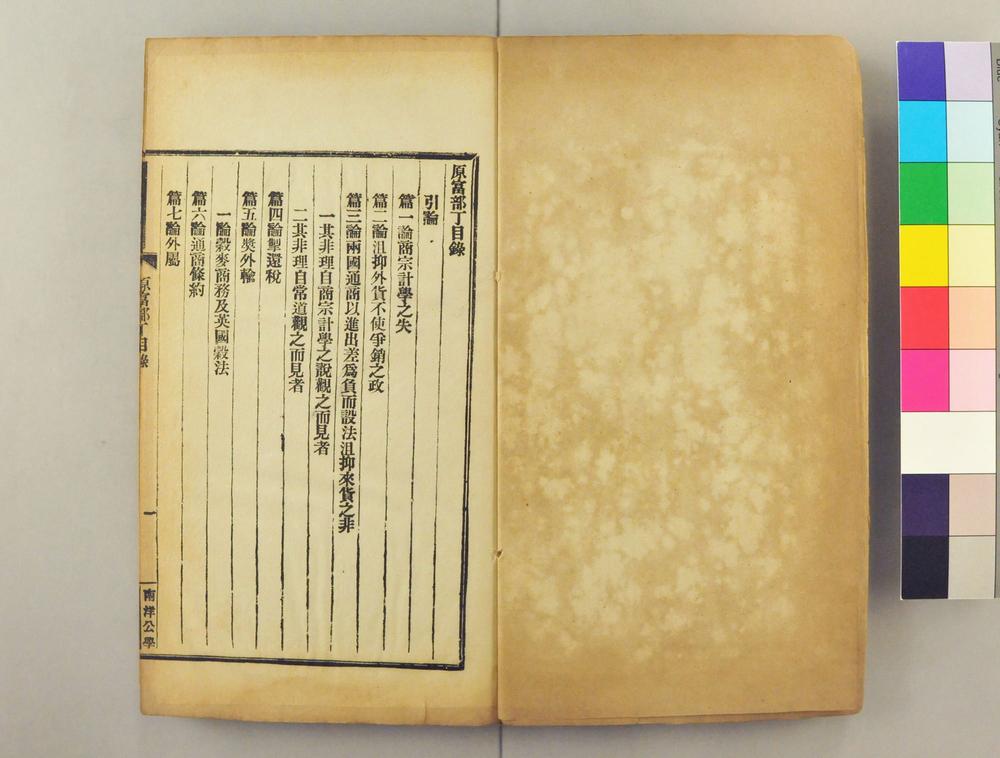 原富部丁目錄
引論
篇一論商宗計學之失
篇二論沮抑外貨不使爭銷之政
篇三論兩國通商以進出差爲負而設法沮抑來貨之非
一其非理自商宗計學之說觀之而見者
二其非理自常道觀之而見者
篇四論掣還稅
篇五論奬外輸
一論穀麥商務及英國穀法
篇六論通商條約
篇七論外屬
原富部丁目錄
一
南洋公學